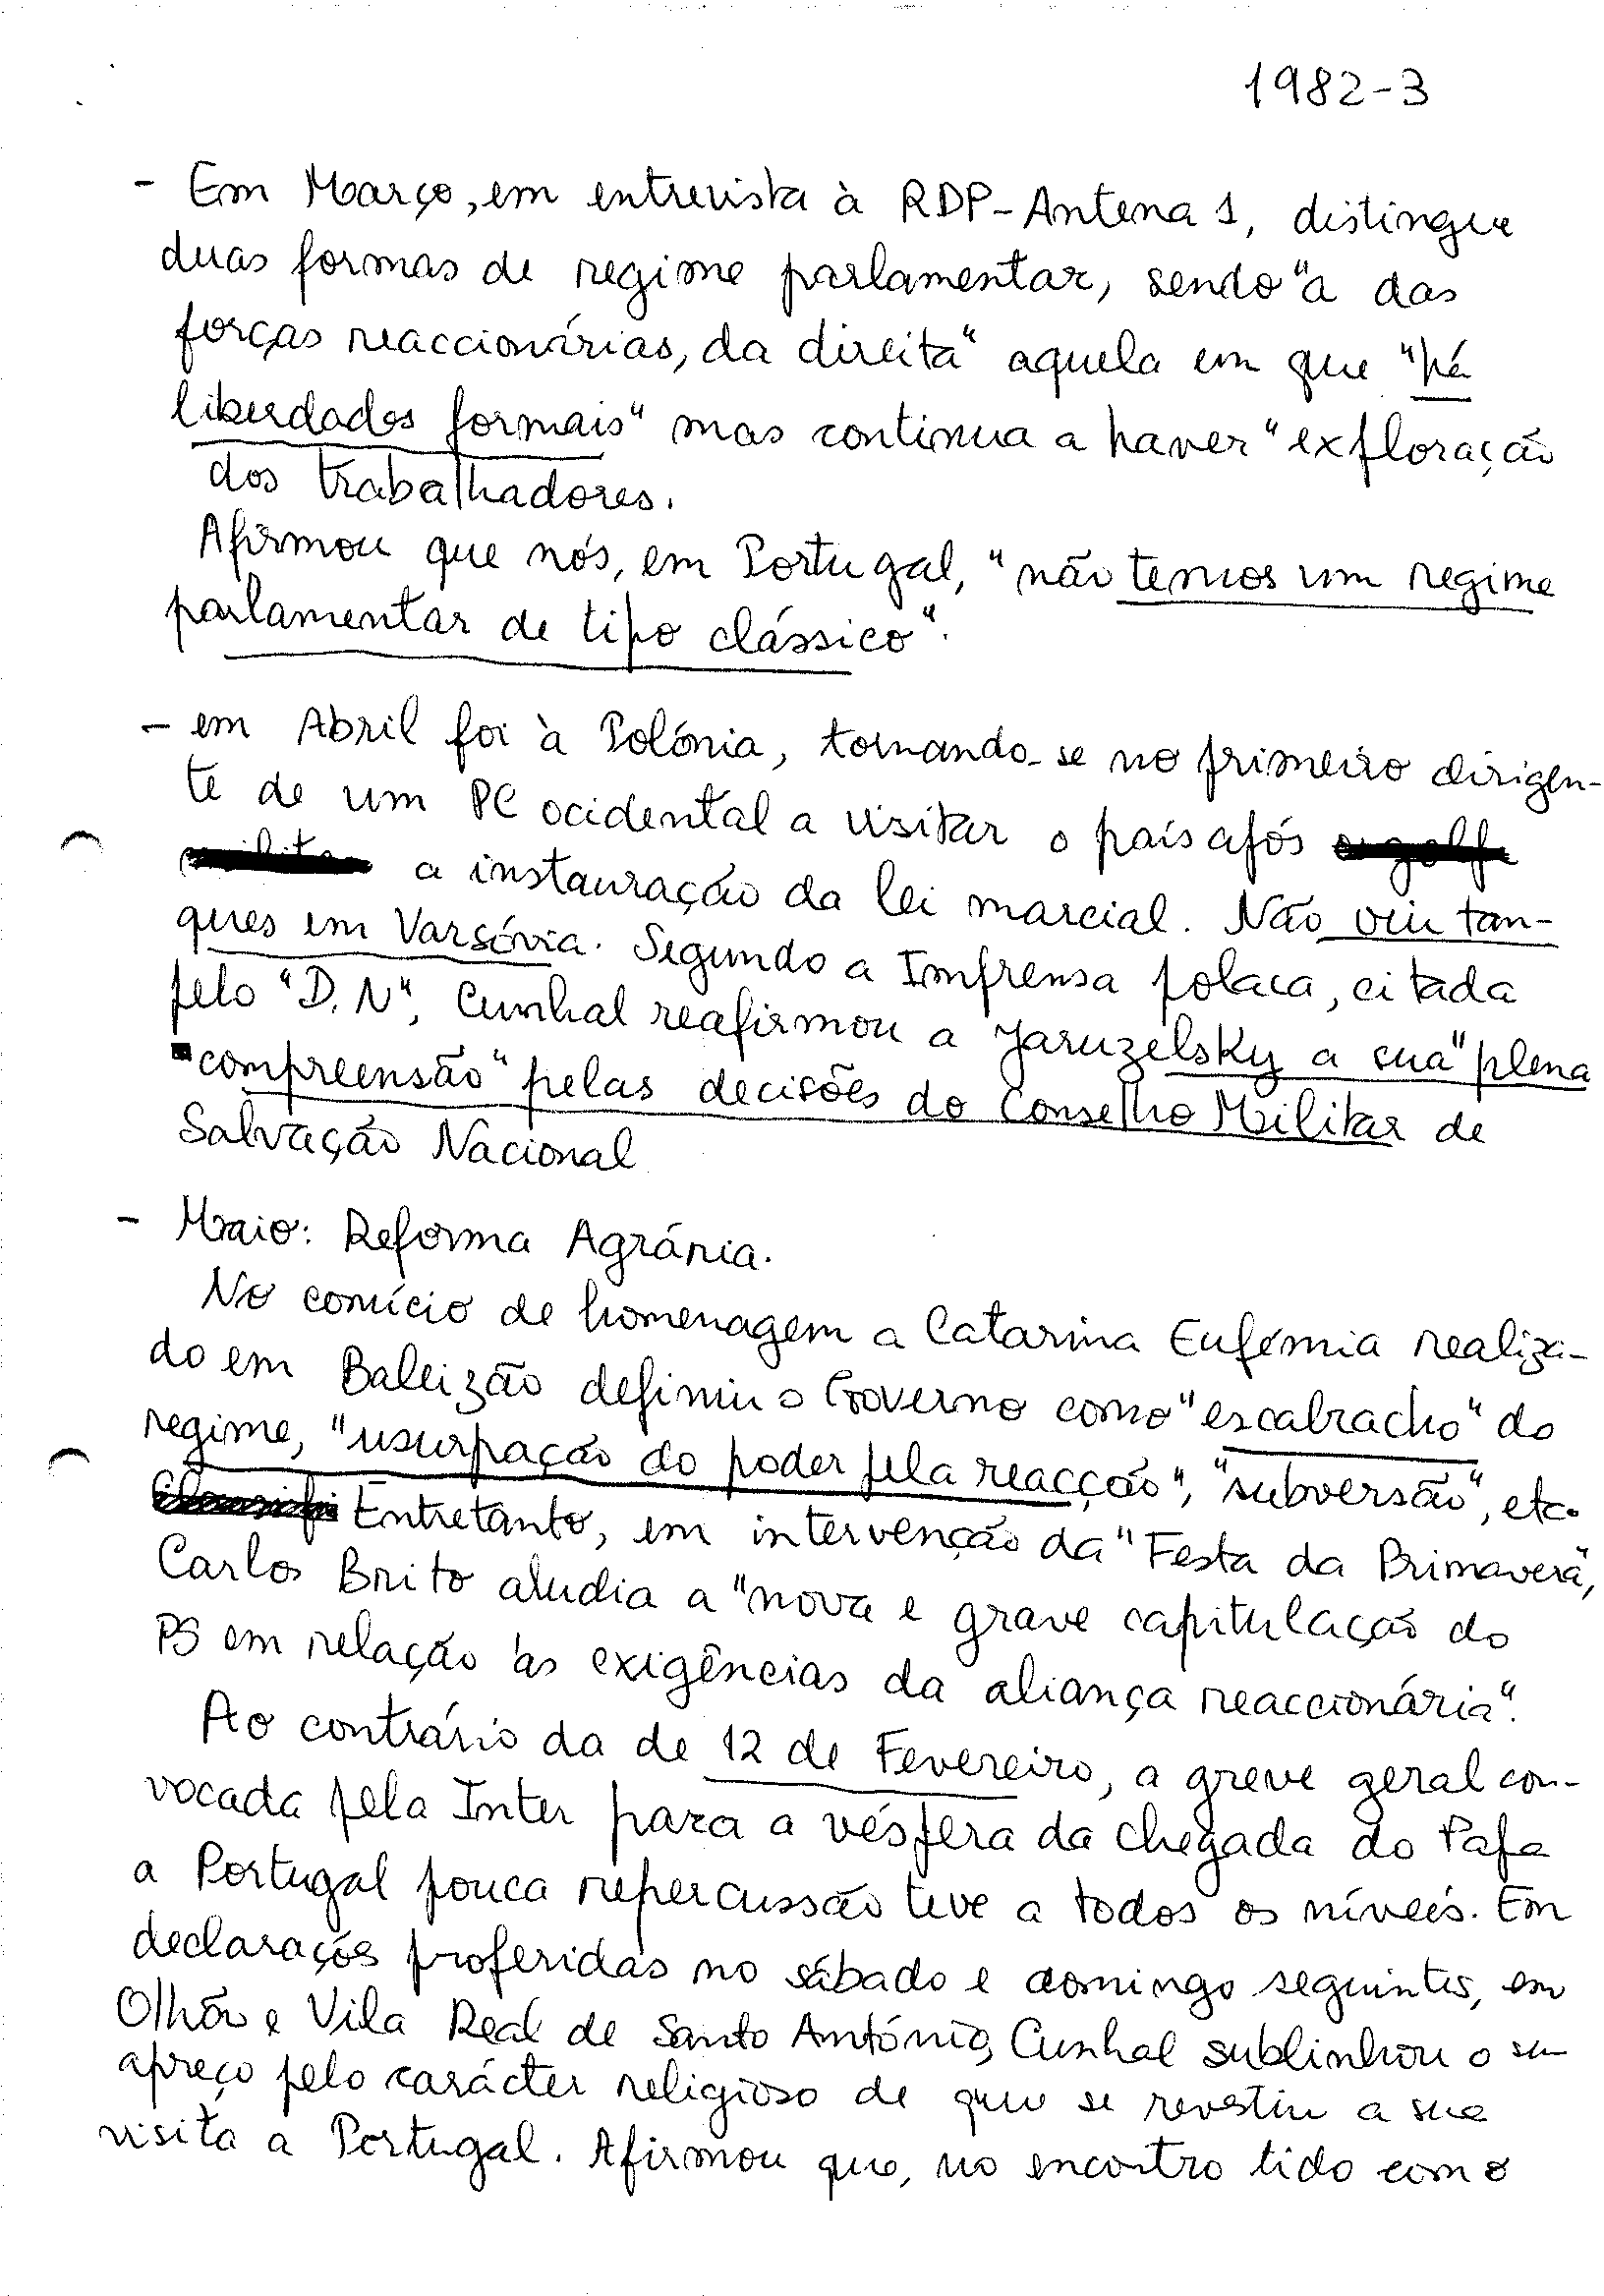 1982-3
- Em Março, em entrevista à RDP-Antena 1, distingue
duas formas de regime parlamentar, sendo "a das
forças reaccionárias, da direita" aquela em que "há
liberdades formais" mas continua a haver "exploração
dos trabalhadores.
Afirmou que nós, em Portugal, "não temos um regime
parlamentar de tipo clássico".
- em Abril foi à Polónia, tornando-se no primeiro dirigen-
te de um PC ocidental a visitar o país após
a instauração da lei marcial. Não viu tan-
ques em Varsóvia. Segundo a Imprensa polaca, citada
pelo "D.N", Cunhal reafirmou a Jaruzelsky a sua "plena
compreensão" pelas decisões do Conselho Militar de
Salvação Nacional
- Maio: Reforma Agrária.
No comício de homenagem a Catarina Eufémia realiza-
do em Baleizão definiu o Governo como "escalracho" do
regime, "usurpação do poder pela reacção", "subversão", etc.
Entretanto, em intervenção da "Festa da Primavera",
Carlos Brito aludia a "nova e grave capitulação do
PS em relação às exigências da aliança reaccionária".
Ao contrário da de 12 de Fevereiro, a greve geral con-
vocada pela Inter para a véspera da chegada do Papa
a Portugal pouca repercussão teve a todos os níveis. Em
declarações proferidas no sábado e domingo seguintes, em
Olhão e Vila Real de Santo António, Cunhal sublinhou o seu
apreço pelo carácter religioso de que se revestiu a sua
visita a Portugal. Afirmou que, no encontro tido com o